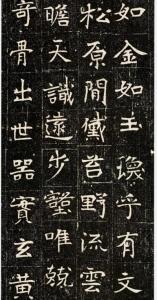 如金如玉瑍乎有文
松原閒苔野流雲
瞻天識遠步壑唯兢
奇骨出世器實玄黃